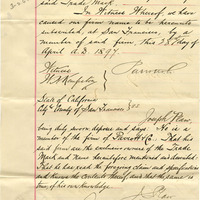 said Trade Mark
In Witness Whereof, we have
caused our firm name to be hereunto
subscribed, at San Francisco, by
a member of said firm, this 28th day of
April A.D. 1897.
Witness
Parrott
State of California
City County of San Francisco } SS
Joseph
being duly sworn deposes and says he is a
member of the firm of Parrott & Co. that his
firm are the exclusive owners of the Trade
Mark and Name hereinbefore mentioned and described.
That he has read the foregoing claim and specifications
and knows the contents thereof, and that the same is
true, of his own knowledge